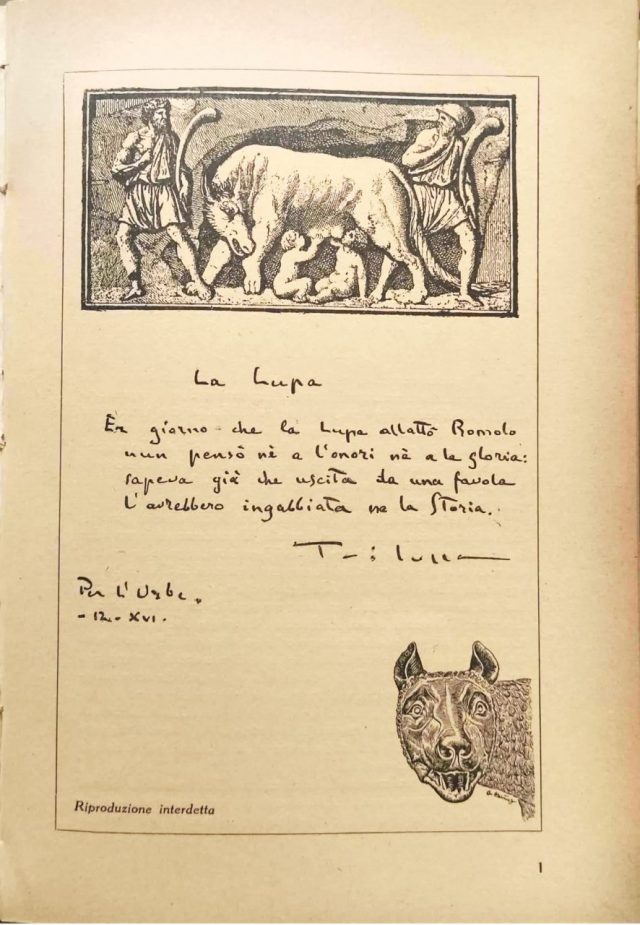 La Lupa
Er giorno che la Lupa allattò Romolo
nun pensò nè a l'onori nè a la gloria:
sapeva già che uscita da una favola
l'avrebbero ingabbiata ne la Storia.
Trilussa
Per L'Urbe.
- 12 - XVI.
Riproduzione interdetta
1